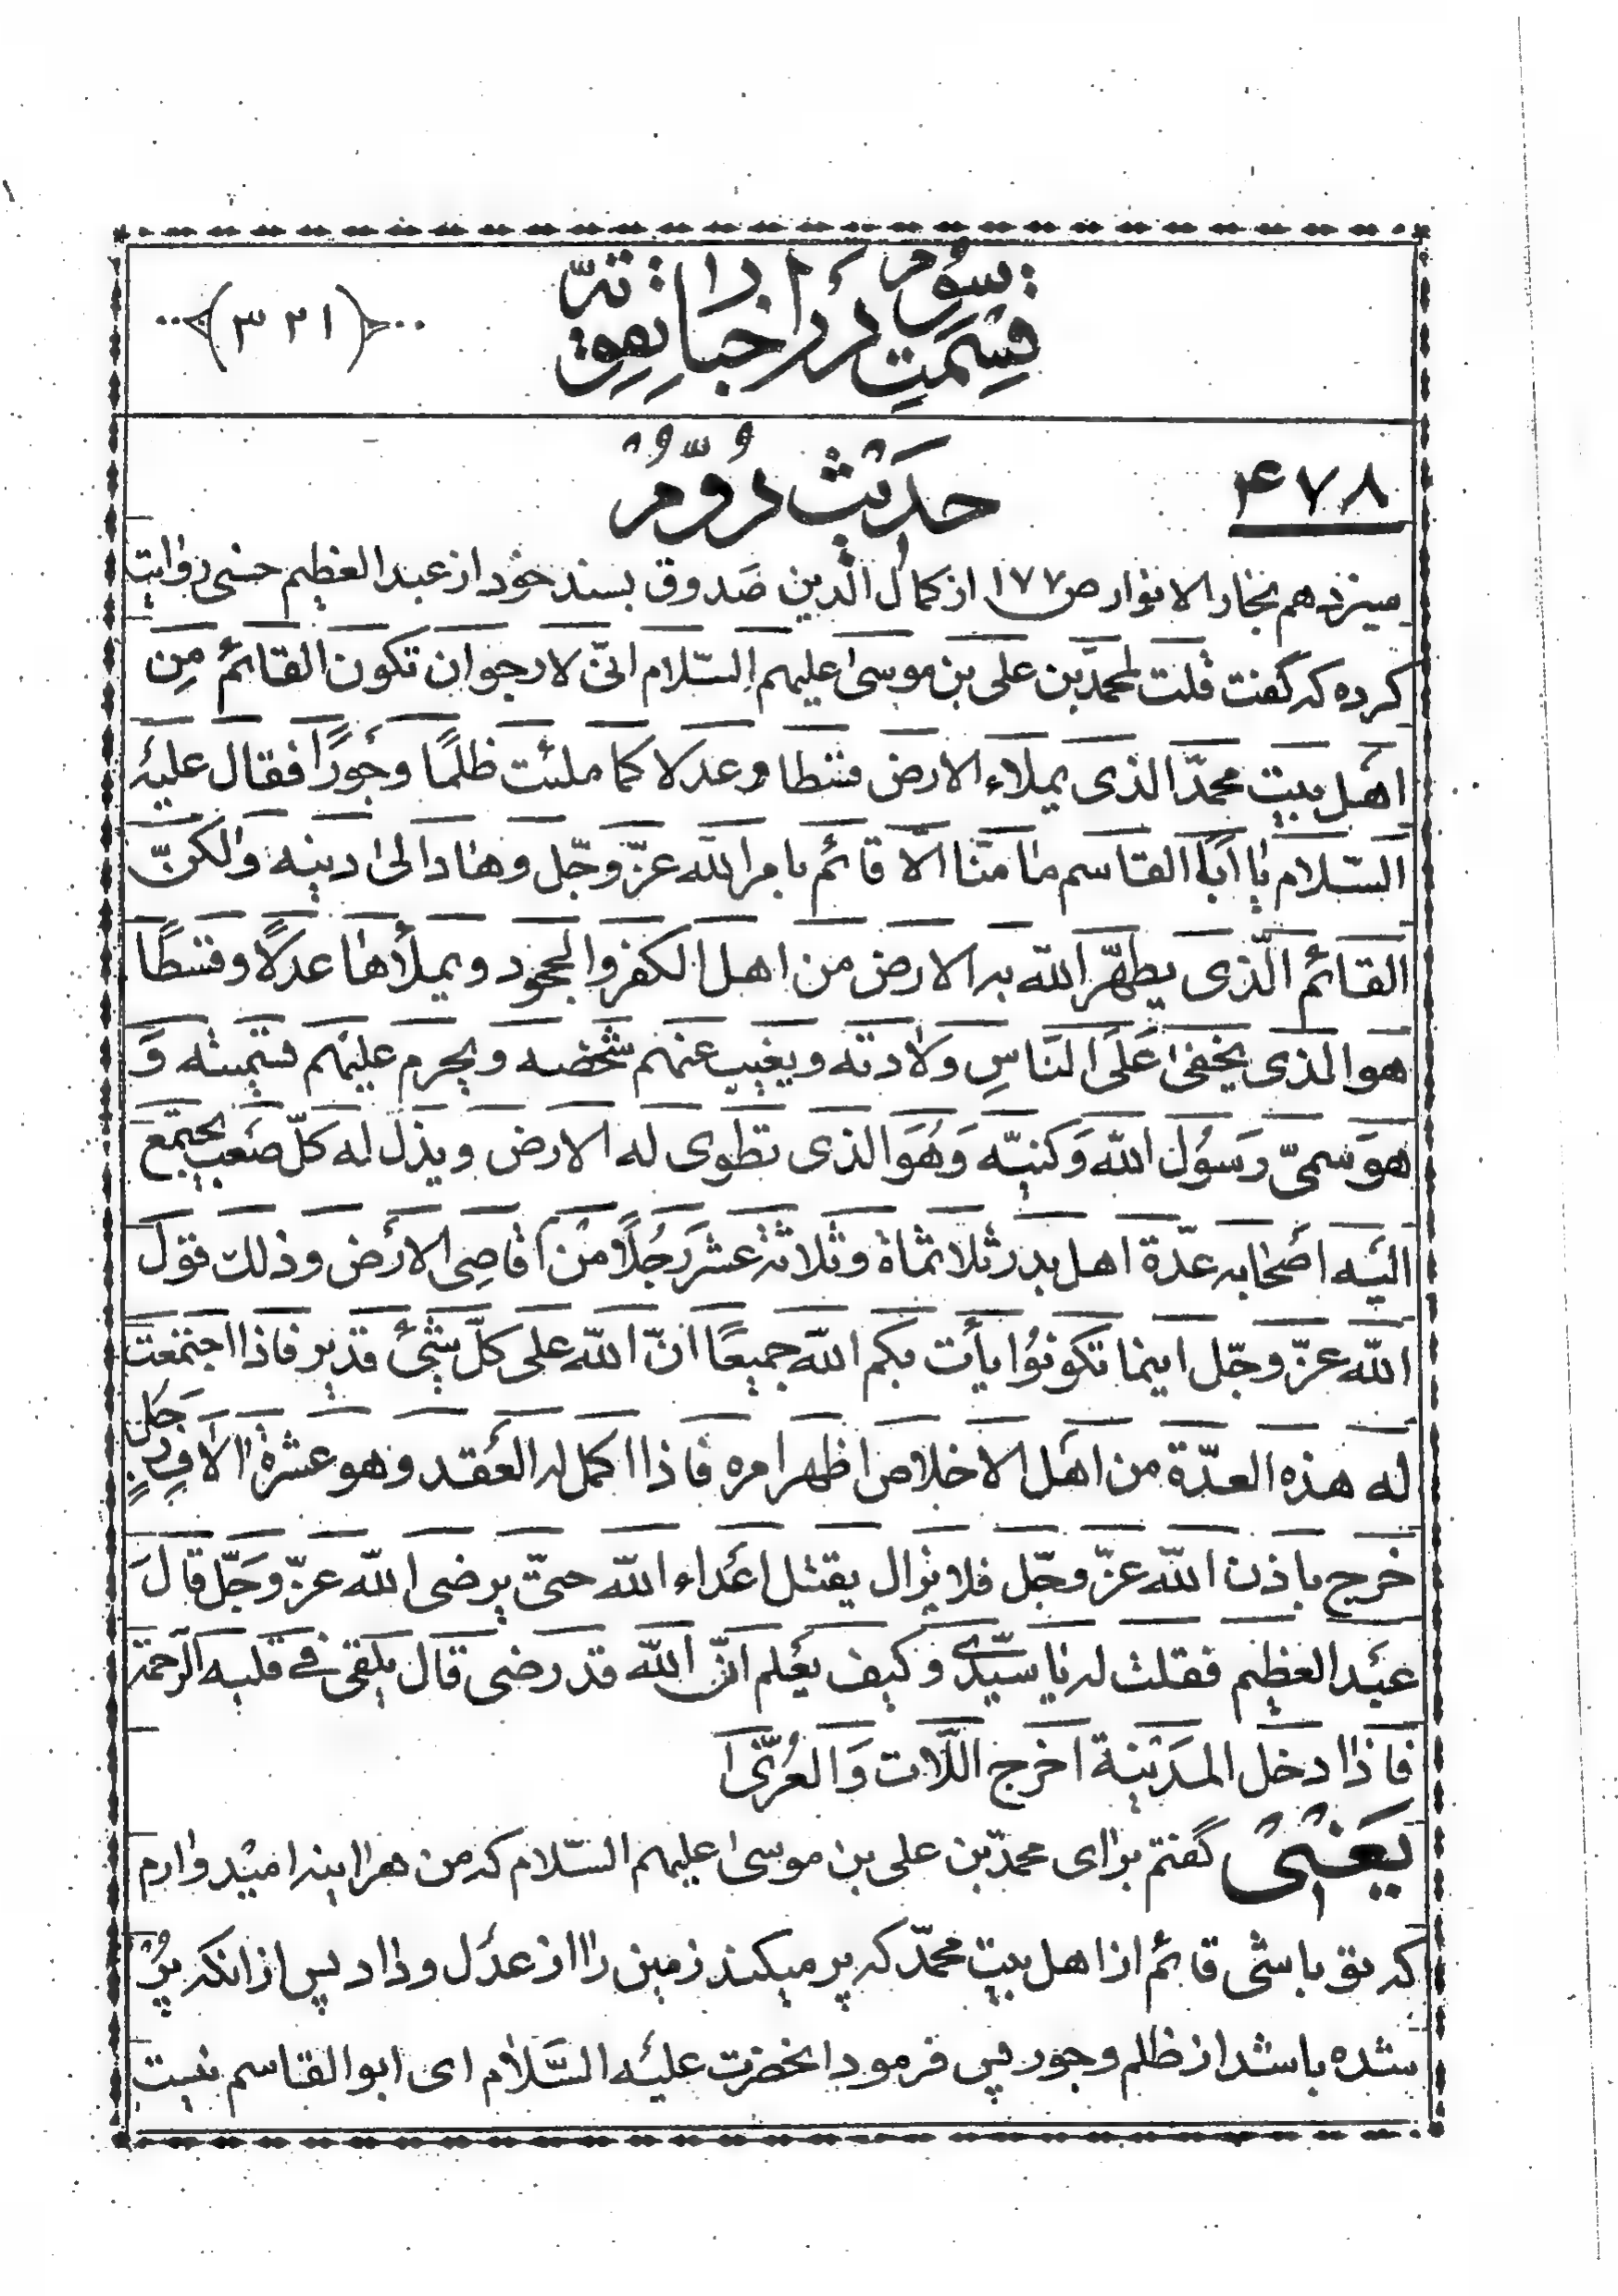 قسمت سوم در اخبار نقویّه
(۳۲۱)
۴۷۸
حدیث دوّم
سیزدهم بحار الانوار ص۱۷۷ از کمال الدین صدوق بسند خود از عبد العظیم حسنی روایت
کرده که گفت قلت لمحمّد بن علی بن موسیٰ علیهم السّلام انّی لارجو ان تکون القائمُ مِن
اهَل بیت محمّد الذی یملاء الارض قسطا و عدلا کما ملئت ظلمًا وجَورًا فقال علیهَ
السّلام یٰا اَبَا القاسم مٰا منّا الّا قائم بامر الله عزّ وجّل وهٰاد الیٰ دینه وٰلکنّ
القائم الّذی یطهّر الله به الارض من اهل الکفر والجحود ویملأهٰا عدلًا وقسطًا
هو الذی یخفیٰ عَلَی النّاسِ ولٰادته ویغیب عنهم شخصه ویحرم علیهم تسمیته وَ
هوَ سمیّ رَسوُل اللّه وَکنیّه وَهُوَ الذی تطوی له الارض ویذلّ له کلّ صَعب یجتمع
الیَه اَصحٰابه عدّة اهل بدر ثلاثمأة وثلاثة عشر رَجُلًا منْ اَقاصِی الارَض وذلک قول
اللّه عزّ وجّل اینما تکونوُا یأت بکم اللّه جمیعًا انّ اللّه علی کلّ شیَئ قدیر فاذا اجتمَعت
له هذه العدّة من اهَل الاخلاص اظهر امره فاذا اکمل له العَقد وهو عشرة الٰافِ رَجلٍ
خرج باذن اللّه عزّ وجّل فلا یزال یقتل اعَداء اللّه حتیّ یرضی اللّه عزّ وَجّل قالَ
عبَد العظیم فقلت له یٰا سیّدی وَکیف یعَلم انّ اللّه قد رضی قال یلقی فی قلبه الرّحمة
فاذٰا دخل المدَینة اخرج اللّات وَالعُزّیٰ
یَعَنیْ گفتم برٰای محمّد بن علی بن موسیٰ علیهم السّلام که من هرٰاینه امیدوٰارم
که تو باشی قائم از اهل بیت محمّد که پر میکند زمین رٰا از عدَل ودٰاد پس ازانکه پُرْ
شده باشد از ظلم وجور پس فرمود انحضرت علیَه السَّلٰام ای ابو القاسم نیست